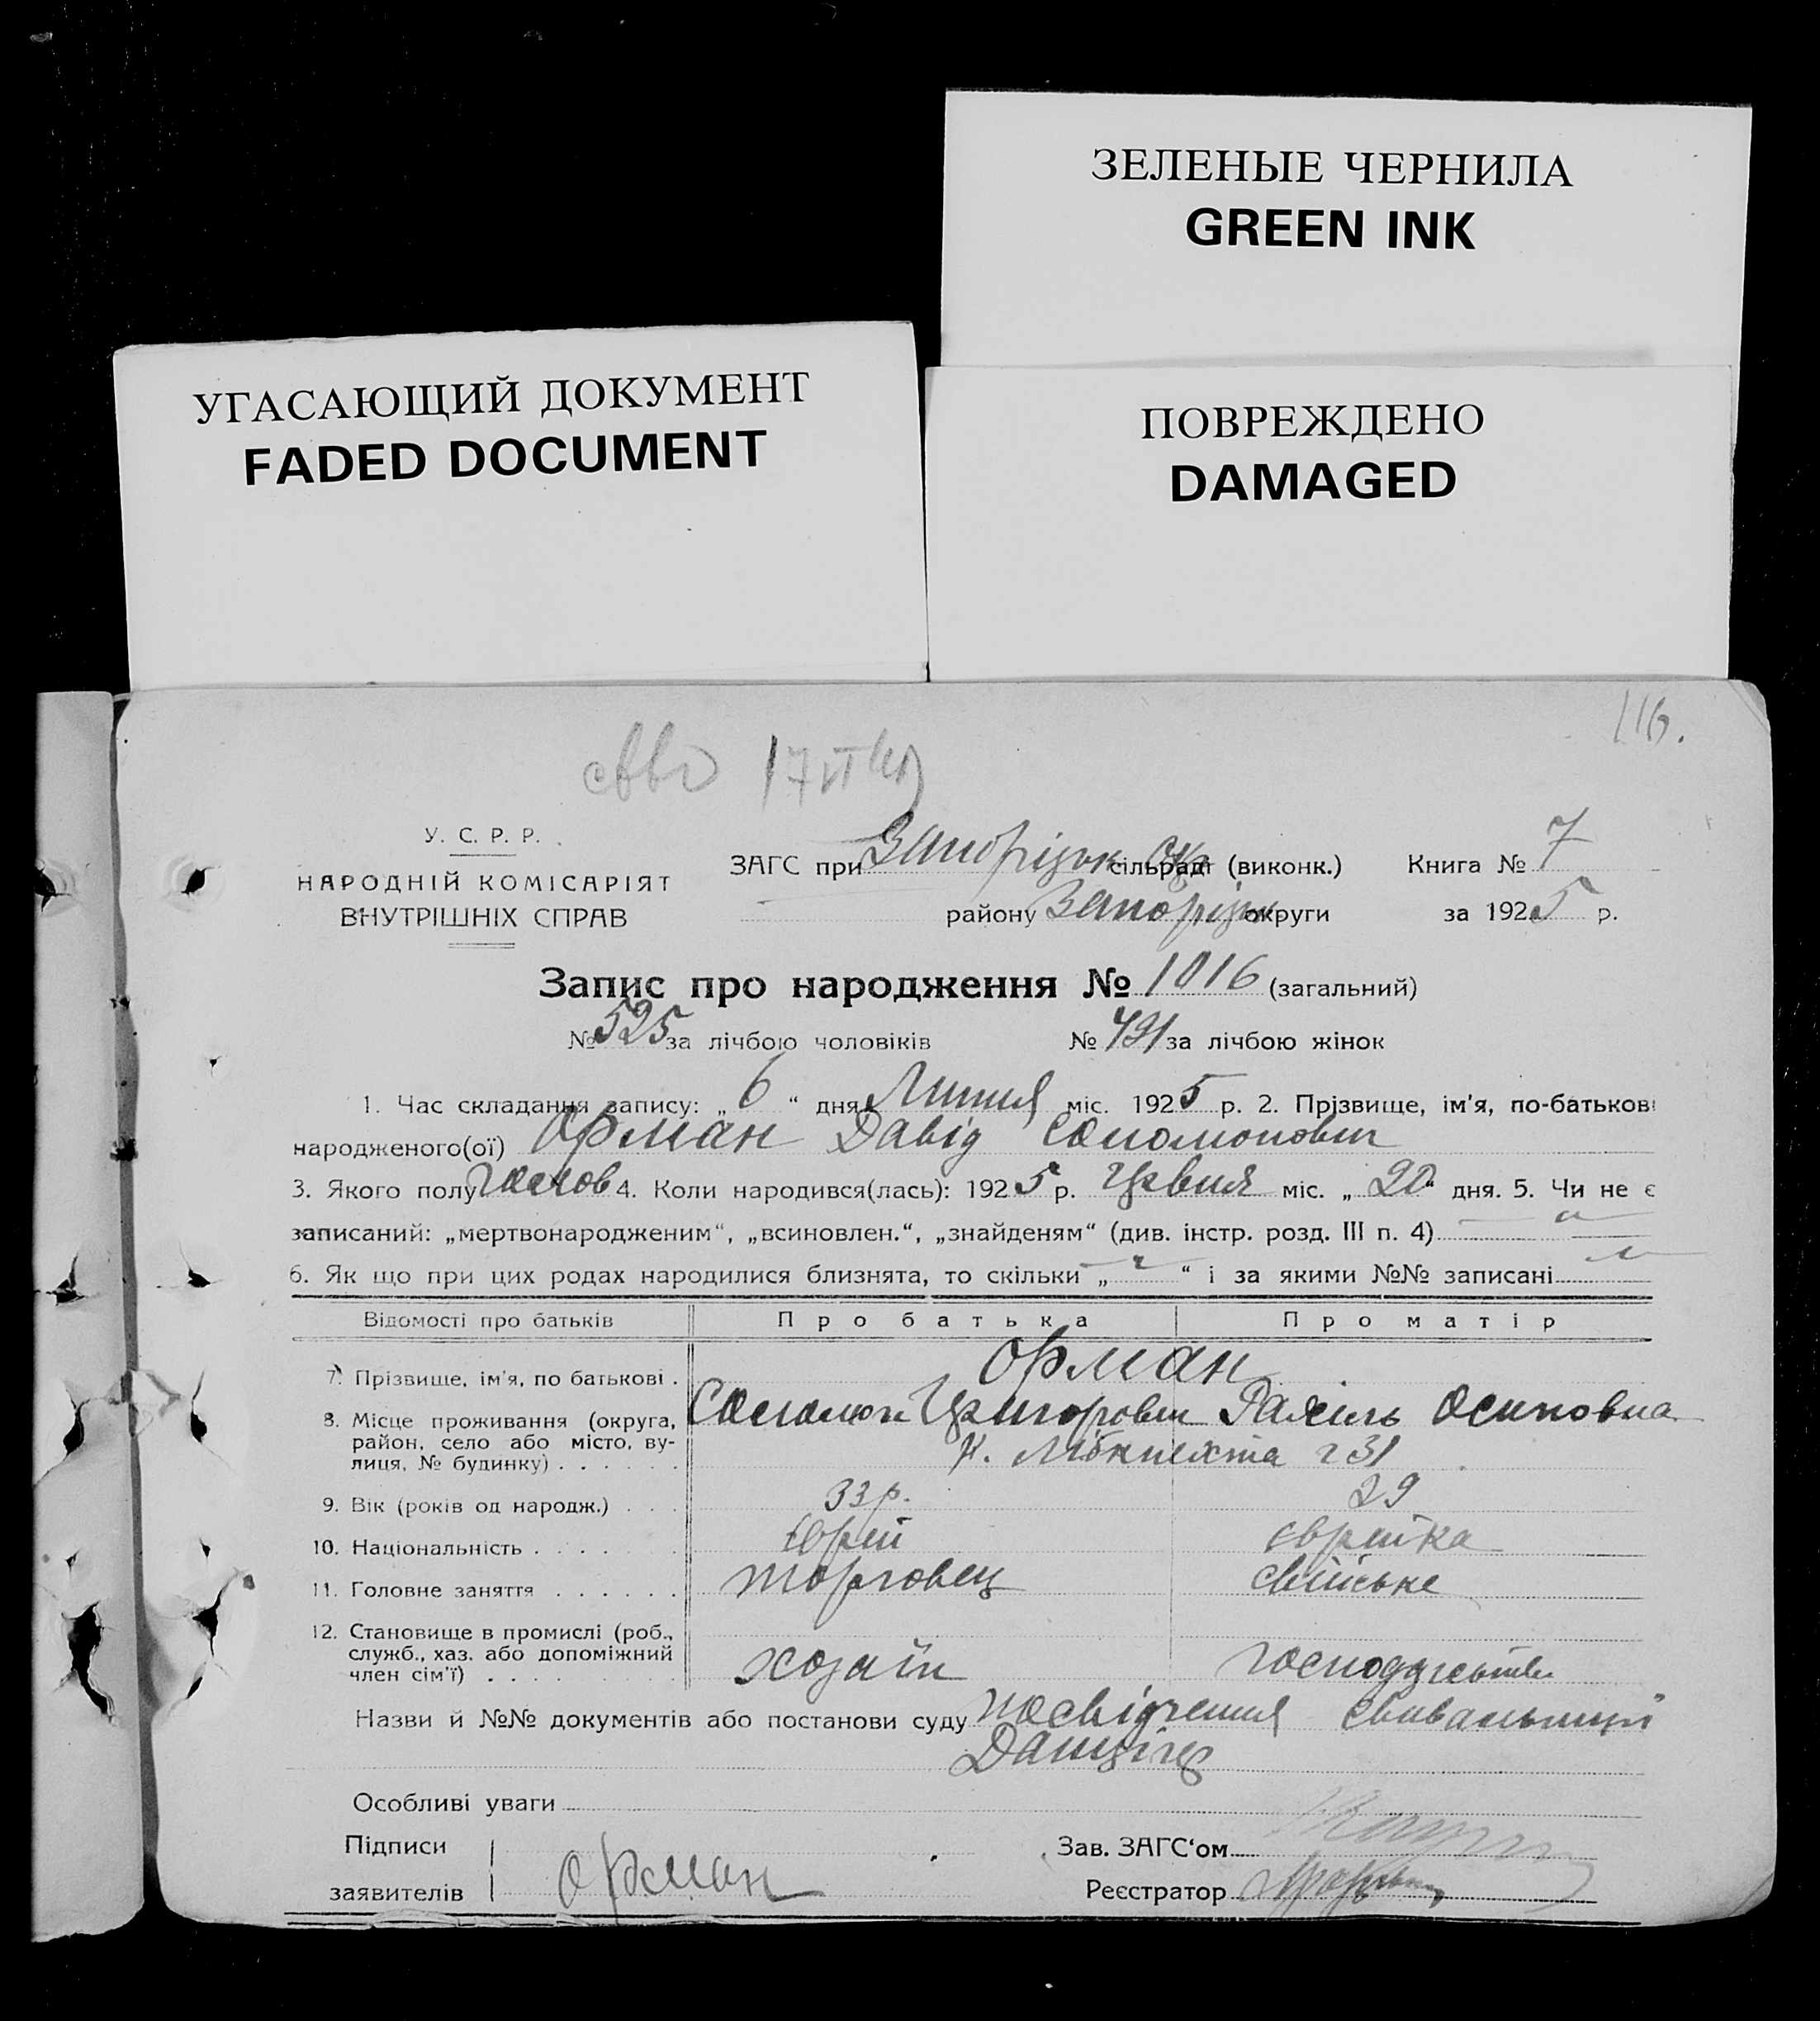 ЗЕЛЕНЫЕ ЧЕРНИЛА
GREEN INK
УГАСАЮЩИЙ ДОКУМЕНТ
FADED DOCUMENT
ПОВРЕЖДЕНО
DAMAGED
116.
17 VI
У. С. Р. Р.
НАРОДНІЙ КОМІСАРІЯТ
ВНУТРІШНІХ СПРАВ
ЗАГС при Запорізьк Окр сільраді (виконк.) Книга № 7
району Запорізьк округи за 1925 р.
Запис про народження № 1016 (загальний)
№ 525 за лічбою чоловіків № 491 за лічбою жінок
1. Час складання запису: „ 6 “ дня Липня міс. 1925 р. 2. Прізвище, ім'я, по-батькові
народженого(ої) Орман Давід Соломонович
3. Якого полу чолов 4. Коли народився(лась): 1925 р. Червня міс. „ 20 “ дня. 5. Чи не є
записаний: „мертвонародженим“, „всиновлен.“, „знайденям“ (див. інстр. розд. III п. 4)
6. Як що при цих родах народилися близнята, то скільки „ “ і за якими №№ записані
Відомості про батьків Про батька Про матір
7. Прізвище, ім'я, по батькові . Орман
Соломон Григорович Рахиль Осиповна
8. Місце проживання (округа, район, село або місто, вулиця, № будинку) . . . . . . К. Лібкнехта 31
9. Вік (років од народж.) . . . 33 р. 29
10. Національність . . . . . Єврей єврейка
11. Головне заняття . . . . . . торговець свійське
12. Становище в промислі (роб., служб., хаз. або допоміжний член сім'ї) . . . . . . хозаїн господарство
Назви й №№ документів або постанови суду посвідчення
Особливі уваги
Підписи
заявителів Орман
Зав. ЗАГС'ом
Реєстратор